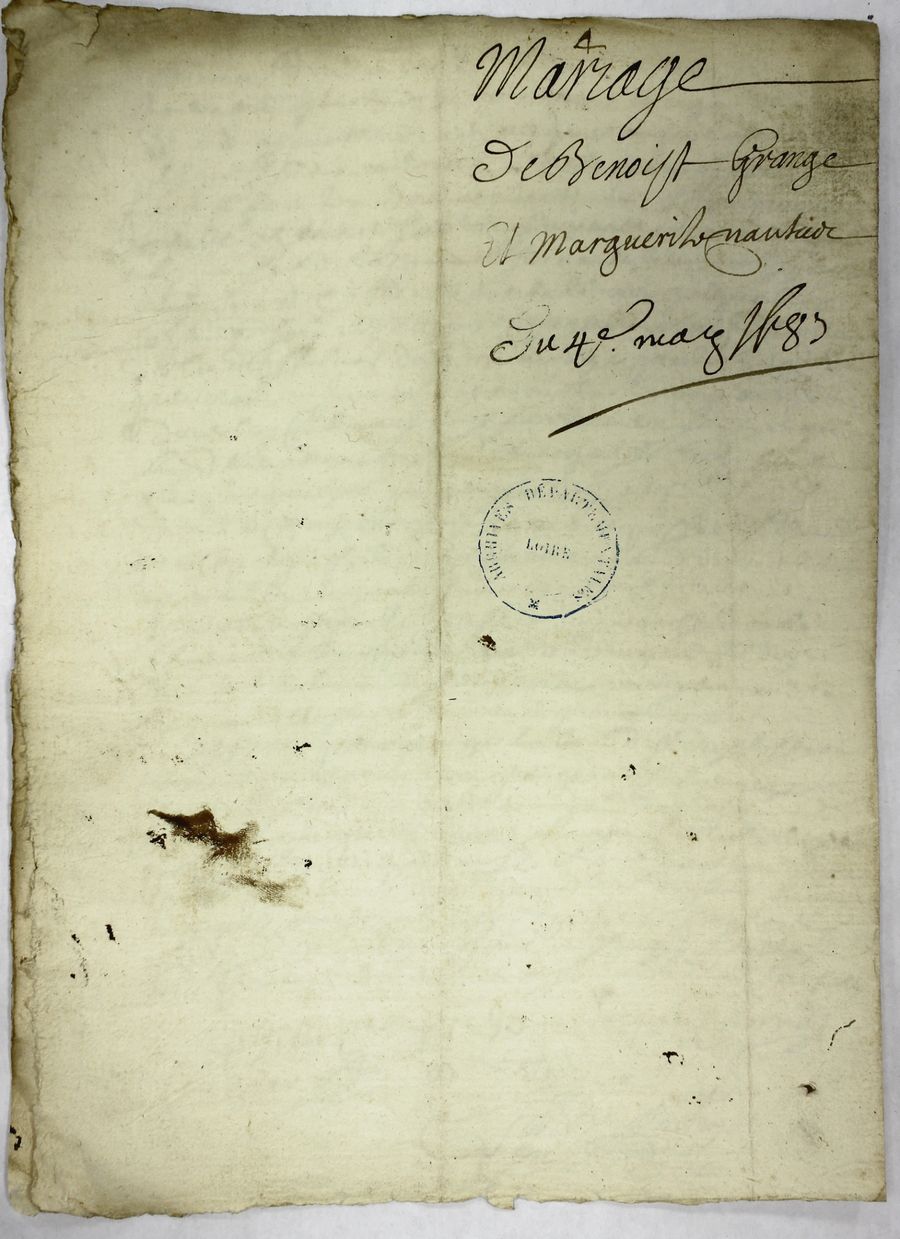 4
Mariage
De Benoist Grange
Et Marguerite
Du 4e. may 1683
ARCHIVES DÉPARTEMENTALES
LOIRE